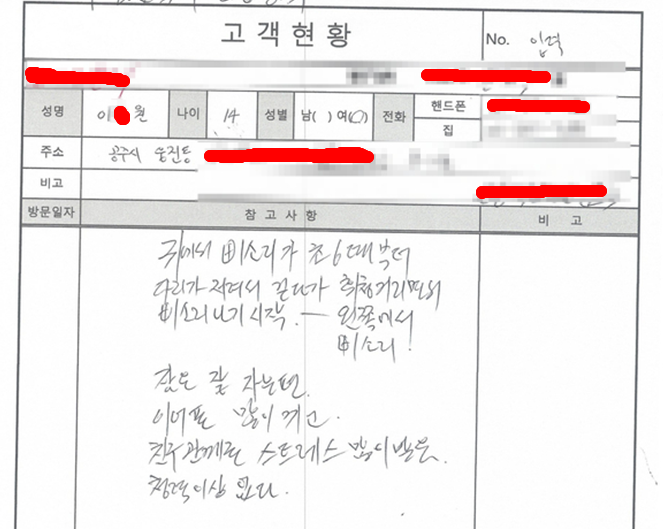 고객현황
No. 입력
성명 이 원 나이 14 성별 남( ) 여(○) 전화 핸드폰
집
주소 공주시
비고
방문일자 참고사항 비고
귀에서 삐소리가 초6때부터
다리가 저려서 걷다가 휘청거리면서
삐소리나기 시작. — 왼쪽에서
삐소리!
잠은 잘 자는편.
이어폰 많이 끼고.
친구관계로 스트레스 많이 받음.
청력이상 없다.